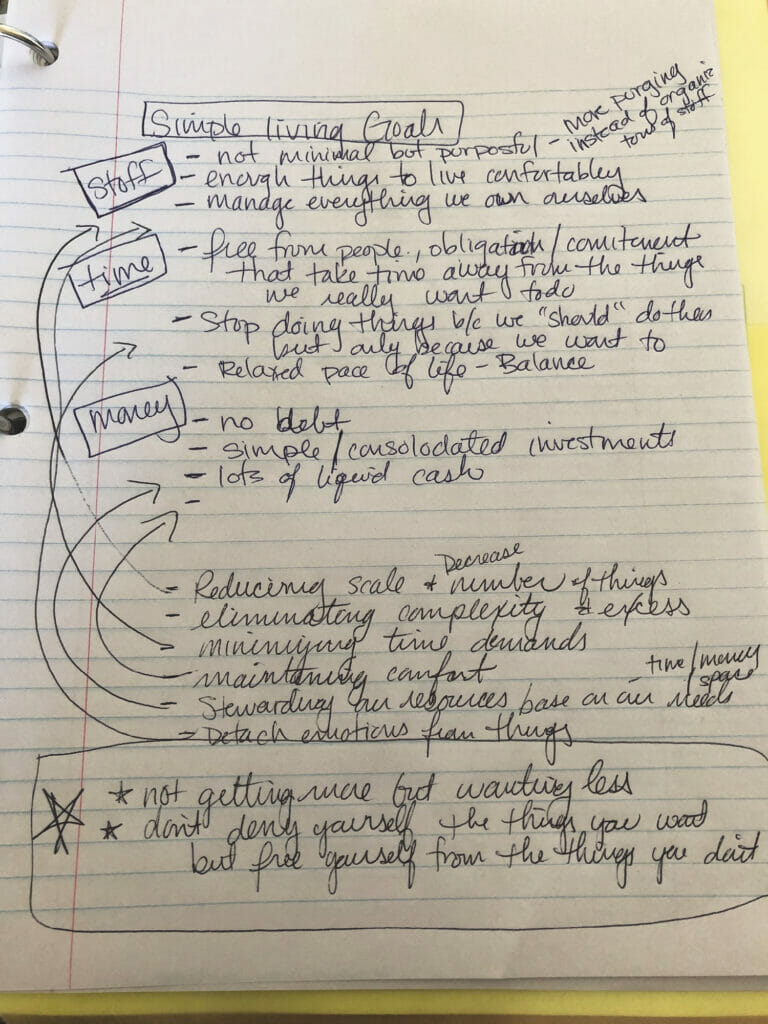 Simple living Goals
Stuff
- not minimal but purposful - More purging
instead of organic
of stuff
- enough things to live confortabley
- manage everything we own ourselves
time
- free from people, obligation/comitement
that take time away from the things
we really want todo
- Stop doing things b/c we "should" do them
but only because we want to
- Relaxed pace of life - Balance
money
- no debt
- simple/consolodated investments
- lots of liquid cash
-
Decrease
- Reducing scale & number of things
- eliminating complexity & excess
- minimizing time demands
- maintaining comfort
- time/money
space
- Stewarding our resources base on our needs
- Detach emotions from things
* not getting more but wanting less
* don't deny yourself the things you want
but free yourself from the things you don't